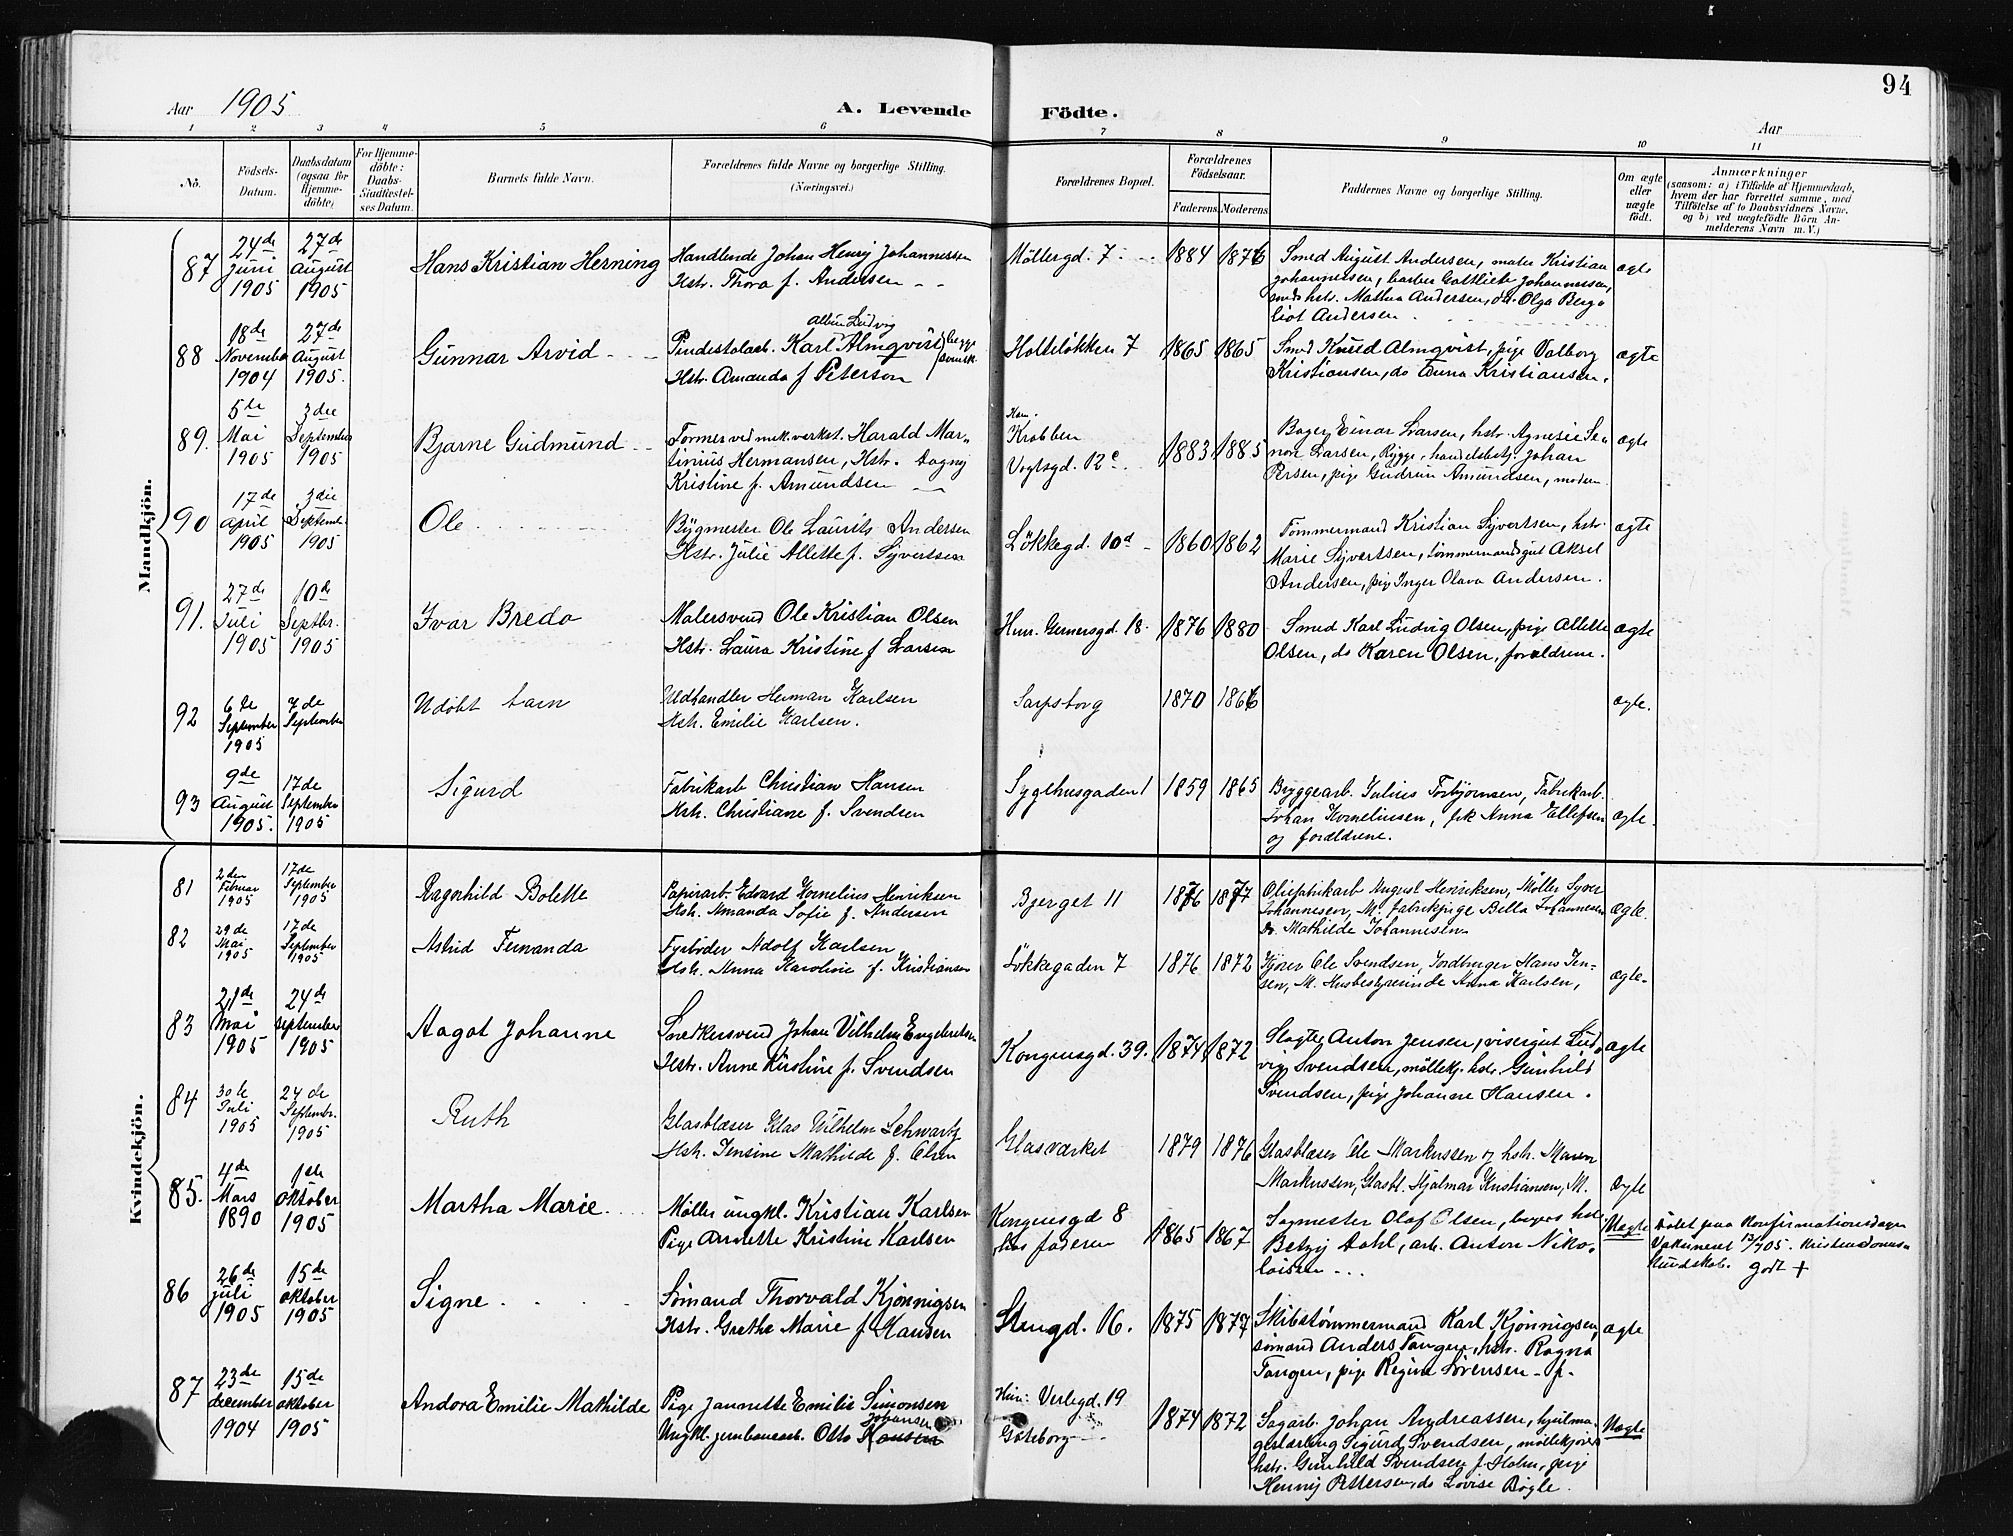 94
Aar 1905
A. Levende Födte.
Aar
1 2 3 4 5 6 7 8 9 10 11
No.
Födsels-Datum.
Daabsdatum (ogsaa for Hjemme-döbte)
For Hjemme-döbte: Daabs-Stadfæstel-ses Datum.
Barnets fulde Navn.
Forældrenes fulde Navne og borgerlige Stilling. (Næringsvei.)
Forældrenes Bopæl.
Forældrenes Födselsaar.
Faderens Moderens
Faddernes Navne og borgerlige Stilling.
Om ægte eller uægte födt.
Anmærkninger
(saasom: a) i Tilfælde af Hjemmedaab, hvem der har forrettet samme, med Tilföielse af to Daabsvidners Navne, og b) ved uægtefödte Börn Anmelderens Navn m. V.)
Mandkjön.
87 24de Juni 1905 27de August 1905 Hans Kristian Herning
Handlende Johan Henrij Johannessen
Hstr. Thora f. Andersen
Möllergd. 7 1884 1876
Smed August Andersen, maler Kristian
Johannessen, barber Gottlieb Johannessen,
smedshstr. Mathea Andersen, do. Olga Bergliot Andersen
ægte
88 18de November 1904 27de August 1905. Gunnar Arvid
Albin Ludvig
Karl Almqvist begge svensk.
Hstr. Amanda f Peterson
Holteløkken 7 1865 1865
Smed Knud Almqvist, pige Valborg
Kristiansen, do Anna Kristiansen.
ægte
89. 5te Mai 1905 3die September 1905 Bjarne Gudmund
Former ved mek. verkst. Harald Martinius Hermansen, Hstr. Dagny
Kristine f. Amundsen
Krabben
Vogtsgd. 12c. 1883 1885
Bager Einar Larsen, hstr. Agnesie
Larsen, Rygge, handelsbetj. Johan
Persen, pige Gudrun Amundsen, moderen
ægte
90 17de April 1905 3die Septemb. 1905 Ole
Bygmester Ole Laurits Andersen
Hstr. Julie Allette f. Syvertsen
Løkkegd. 10d 1860 1862
Tømmermand Kristian Syvertsen, hstr.
Marie Syvertsen, tømmermandsgut Aksel
Andersen, pige Inger Olava Andersen.
ægte
91. 27de Juli 1905 10de Septbr. 1905 Ivar Bredo
Malersvend Ole Kristian Olsen
Hstr. Laura Kristine f Larsen
Hun. Gernersgd. 18 1876 1880
Smed Karl Ludvig Olsen, pige Allette
Olsen, do Karen Olsen, forældrene.
ægte
92 6te September 1905 7de September Udøbt barn
Vedhandler Herman Karlsen
Hstr. Emilie Karlsen.
Sarpsborg 1870 1866
ægte.
93 9de August 1905. 17de September 1905 Sigurd
Fabrikarb Christian Hansen
Hstr. Christiane f. Svendsen
Sygehusgaden 1 1859 1865
Bryggearb. Julius Torbjørnsen, Fabrikarb.
Johan Korneliussen, frk Anna Ellefsen
og forældrene.
ægte.
Kvindekjön.
81 2den Februar 1905 17de September 1905 Ragnhild Bolette
Papirarb. Edvard Kornelius Henriksen
Hstr. Amanda Sofie f. Andersen
Bjerget 11 1876 1877
August Henriksen, Møller Syver
Johannesen, M. fabrikpige Bella Johannesen
Do. Mathilde Johannesen
ægte.
82 29de Mai 1905 17de September 1905 Astrid Fernanda
Fyrbøder Adolf Karlsen
Hstr. Anna Karoline f. Kristiansen
Løkkegaden 7 1876 1872
Kjører Ole Svendsen, Jordbruger Hans Jensen, M. Husbestyrerinde Anna Karlsen,
ægte.
83 21de Mai 1905 24de September 1905 Aagot Johanne
Snedkersvend Johan Vilhelm Engebretsen
Hstr. Anne Kirstine f. Svendsen
Kongensgd. 39. 1874 1872
Slagter Anton Jensen, visergut Ludvig Svendsen, møllekj. hstr. Gunhild
Svendsen, pige Johanne Hansen.
ægte
84 30te Juli 1905 24de Septembr. 1905 Ruth
Glasblæser Klas Wilhelm Schwartz
Hstr. Jensine Mathilde f. Olsen
Glasværket 1879 1876
Glasblæser Ole Markussen og hstr. Maren
Markussen, Glasbl. Hjalmar Kristiansen, M.
ægte
85. 4de Mars 1890 1ste Oktober 1905 Martha Marie
Møller ungkl. Kristian Karlsen
Pige Annette Kristine Karlsen
Kongensgd 8
hos faderen 1865 1867
Sagmester Olaf Olsen, bagers hstr
Betzy Dahl, arb. Anton Nikolaisen
Uægte
Døbt paa Konfirmationsdagen
Vakcineret 12/7 05. Kristendomskundskab. godt +
86 26de Juli 1905 15de Oktober 1905 Signe
Sömand Thorvald Kjønnigsen
Hstr. Grethe Marie f Hansen
Stengd. 16. 1875 1877
Skibstømmermand Karl Kjønnigsen,
sömand Anders Tangen, hstr. Ragna
Tangen, pige Regine Sörensen
ægte
87 23de December 1904 15de Oktober 1905 Andora Emilie Mathilde
Pige Jannette Emilie Simonsen
Ungkl. jernbanearb. Otto Hansen Johansen
Hun: Verlegd. 19
Göteborg 1874 1872
Sagarb. Johan Andreassen,
Sigurd Svendsen, møllekjørers
hstr. Gunhild Svendsen f. Holm, pige
Henny Pettersen, do Lovise Bøgle.
Uægte